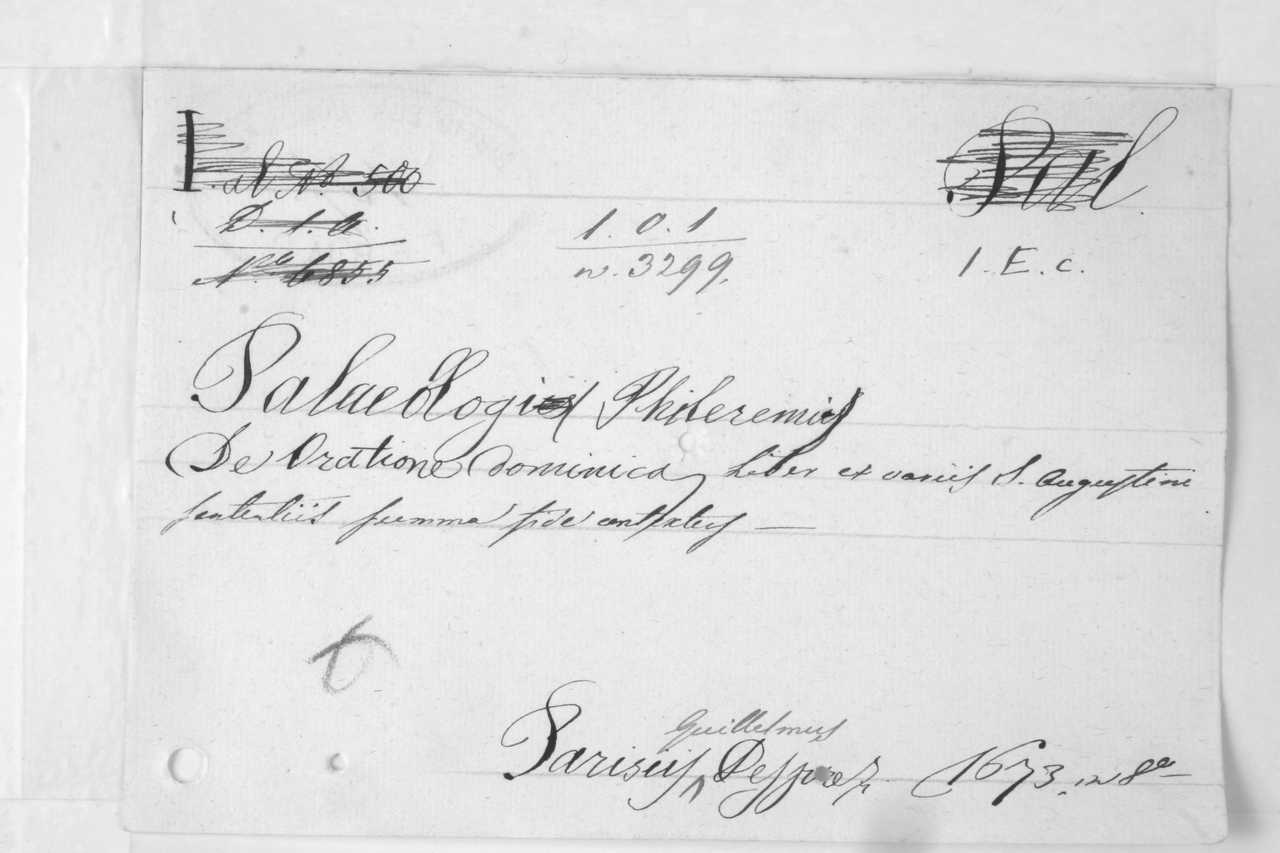 Pal N° 500
Pal.
D. 1. a.
N° 6855
1. 0. 1
n. 3299.
1. E. c.
Palaeologi Phileremus
De Oratione dominica, Liber ex variis S. Augustini
sententiis summa fide contextus —
Guillelmus
Parisiis Desprez 1673. in 8°